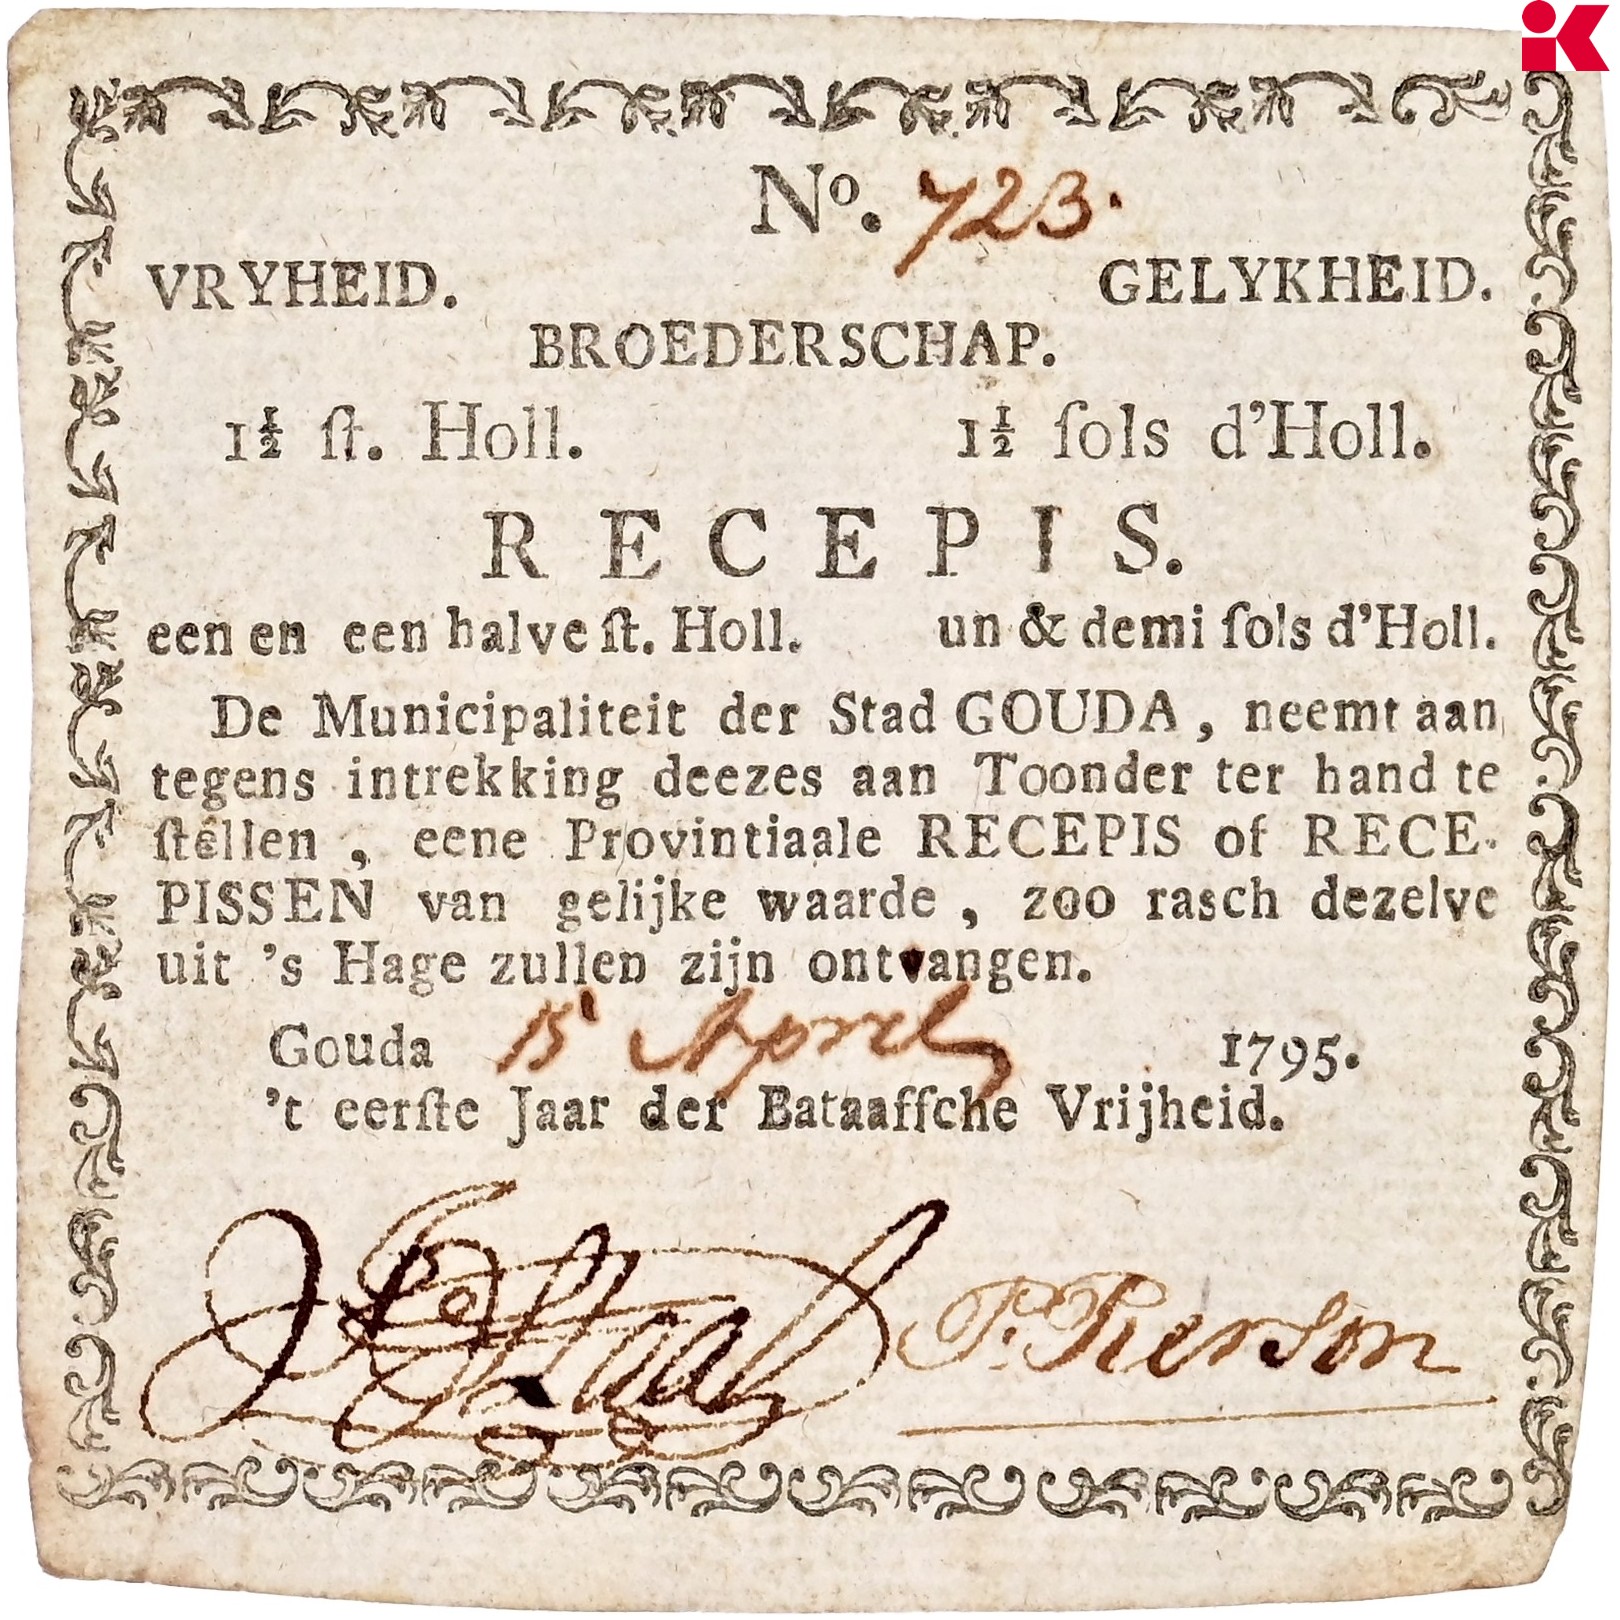 No. 723.
VRYHEID. GELYKHEID.
BROEDERSCHAP.
1½ ſt. Holl. 1½ ſols d'Holl.
RECEPIS.
een en een halve ſt. Holl. un & demi ſols d'Holl.
De Municipaliteit der Stad GOUDA, neemt aan
tegens intrekking deezes aan Toonder ter hand te
ſtellen, eene Provintiaale RECEPIS of RECE-
PISSEN van gelijke waarde, zoo rasch dezelve
uit 's Hage zullen zijn ontvangen.
Gouda 15 April 1795.
't eerſte Jaar der Bataafſche Vrijheid.
P. Pierson